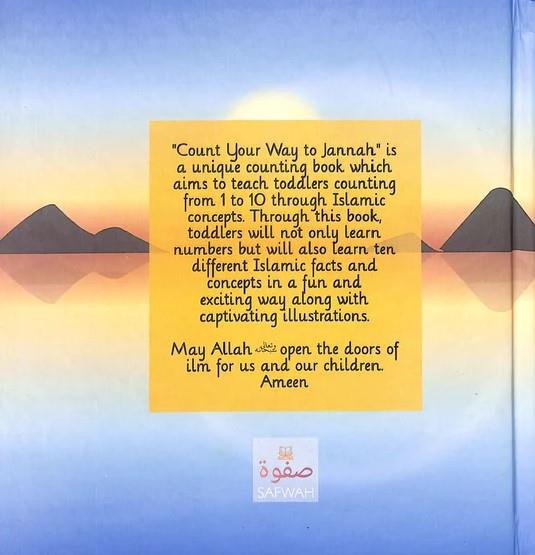 "Count Your Way to Jannah" is
a unique counting book which
aims to teach toddlers counting
from 1 to 10 through Islamic
concepts. Through this book,
toddlers will not only learn
numbers but will also learn ten
different Islamic facts and
concepts in a fun and
exciting way along with
captivating illustrations.
May Allah سبحانه وتعالى open the doors of
ilm for us and our children.
Ameen
صفوة
SAFWAH